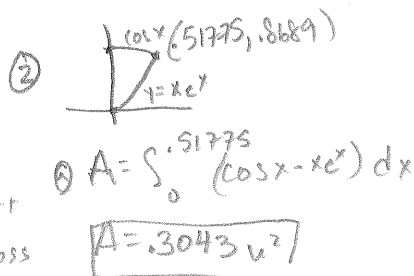 ② cos x (.51775, .8689)
y = xeˣ
ⓐ A = ∫₀^.51775 (cos x - xeˣ) dx
oss
A = .3043 u²